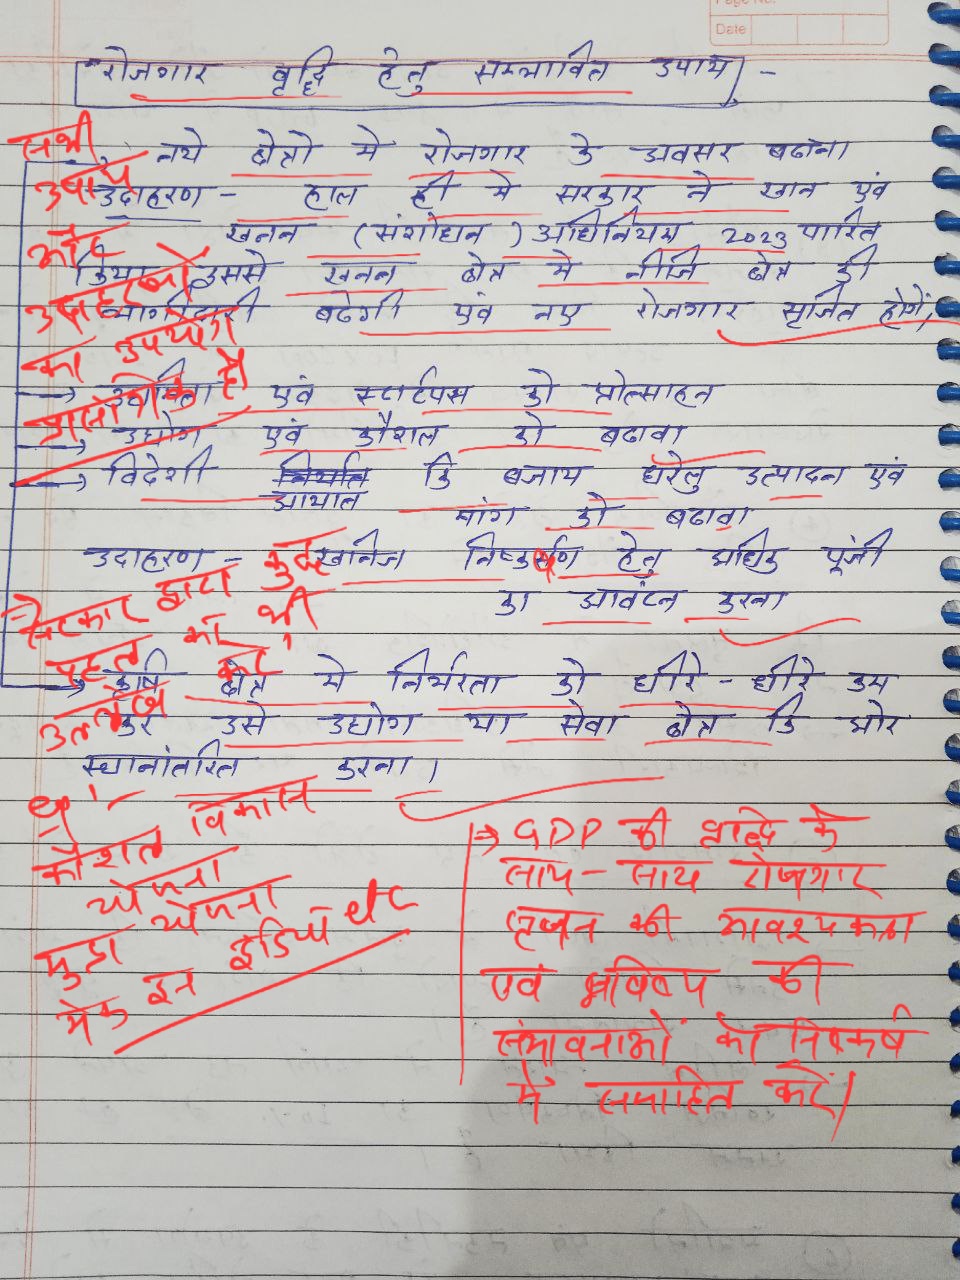 Page No.
Date
रोजगार वृद्धि हेतु सम्भावित उपाय -
नये क्षेत्रो मे रोजगार के अवसर बढाना
उदाहरण - हाल ही मे सरकार ने खान एवं
खनन (संशोधन) अधिनियम 2023 पारित
किया इससे खनन क्षेत्र मे नीजि क्षेत्र की
भागीदारी बढेगी एवं नए रोजगार सृजित होगें,
→ उद्यमिता एवं स्टार्टपस को प्रोत्साहन
→ उद्योग एवं कौशल को बढावा
→ विदेशी निर्यात कि बजाय घरेलु उत्पादन एवं
आयात
मांग को बढावा
उदाहरण - खनिज निष्कर्षण हेतु अधिक पूंजी
का आवंटन करना
→ कृषि क्षेत्र मे निर्भरता को धीरे - धीरे कम
कर उसे उद्योग या सेवा क्षेत्र कि ओर
स्थानांतरित करना।
सभी
उपाय
और
उदाहरणो
का उपयोग
प्रासंगिक है
⇒ सरकार द्वारा कुछ
पहल का भी
उल्लेख करें
कौशल विकास
योजना
मुद्रा योजना
मेक इन इंडिया etc
⇒ GDP की वृद्धि के
साथ - साथ रोजगार
सृजन की आवश्यकता
एवं भविष्य की
संभावनाओं को निष्कर्ष
में समाहित करें।